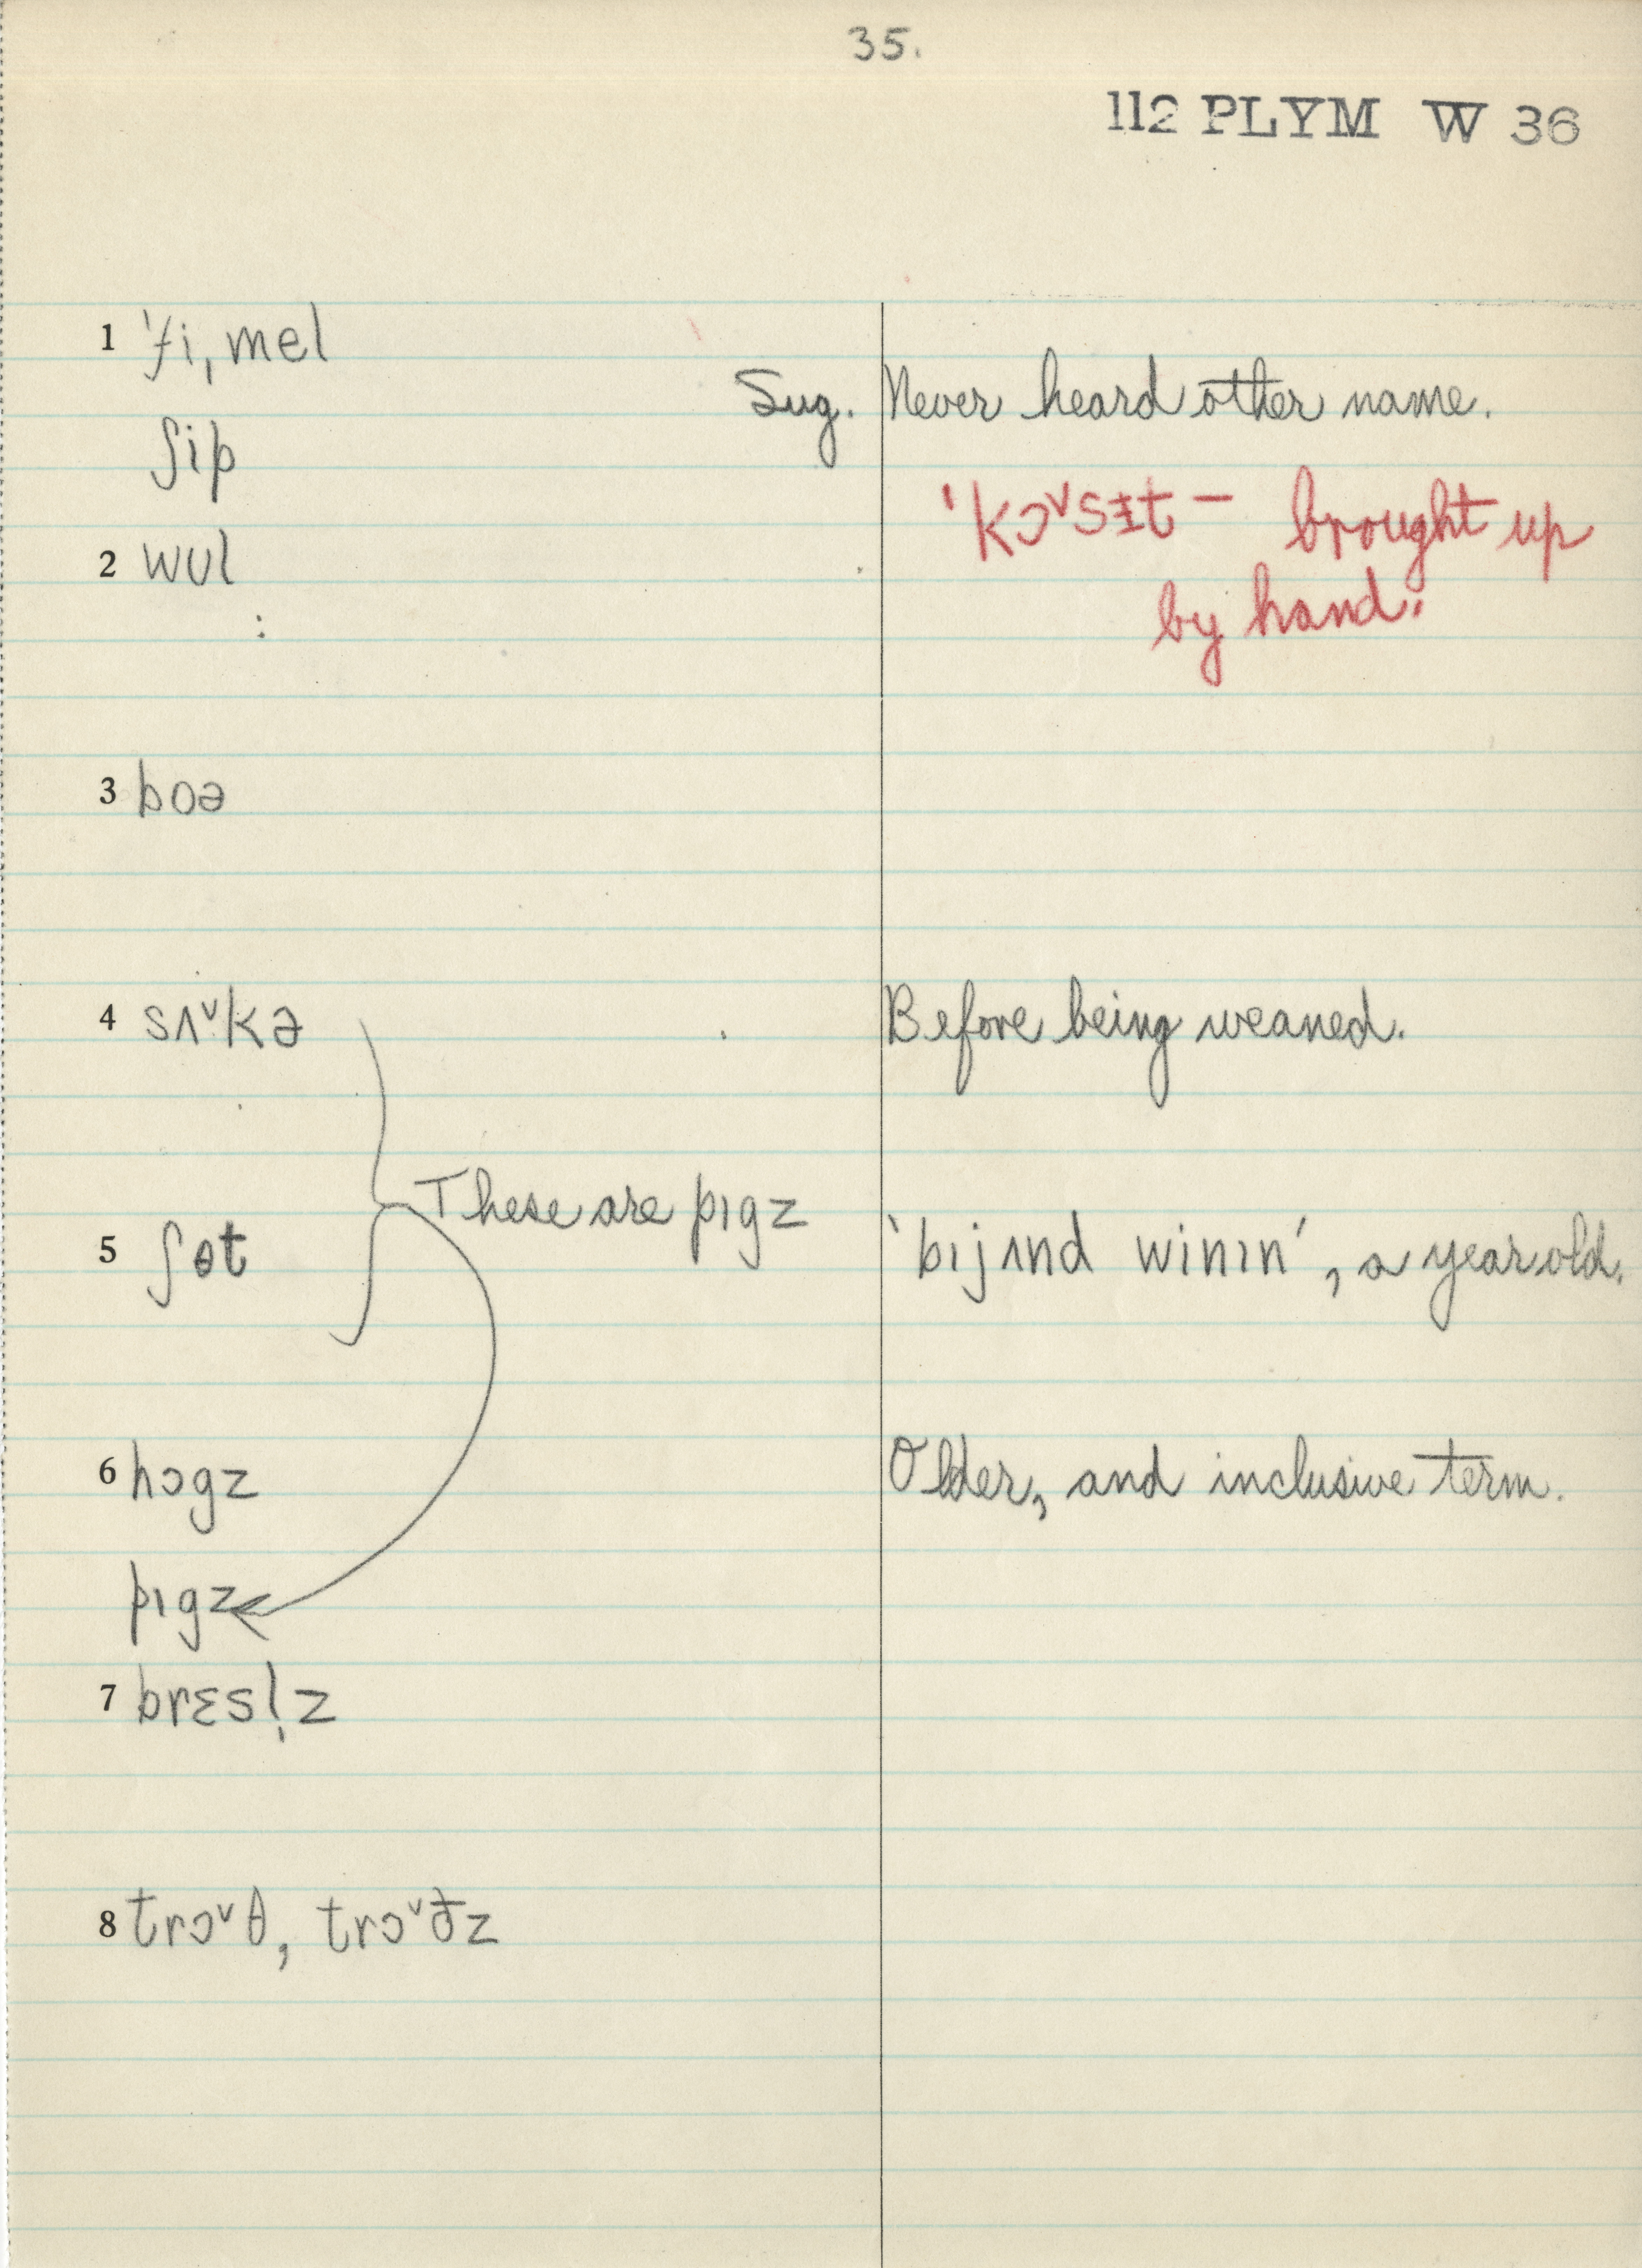 35.
112 PLYM W 36
1 ˈfiˌmel
Sug. Never heard other name.
ʃip
ˈkɔ˅sɪ̵t – brought up
2 wʊl
by hand.
3 boə
4 sʌ˅kə Before being weaned.
These are pɪgz
5 ʃɵt 'bɪjʌnd winɪn', a year old.
6 hɔgz Older, and inclusive term.
pɪgz
7 brɛsl̩z
8 trɔ˅θ, trɔ˅ðz